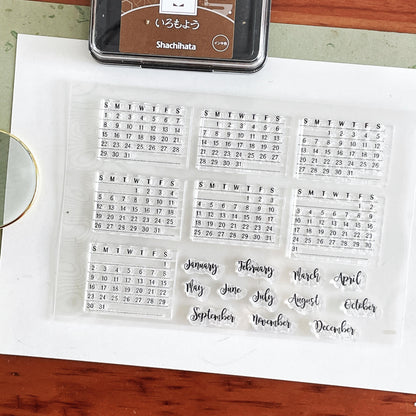 いろもよう
Shachihata
S M T W T F S
1 2 3 4 5 6 7
8 9 10 11 12 13 14
15 16 17 18 19 20 21
22 23 24 25 26 27 28
29 30 31
S M T W T F S
1 2 3 4 5 6
7 8 9 10 11 12 13
14 15 16 17 18 19 20
21 22 23 24 25 26 27
28 29 30 31
S M T W T F S
1 2 3 4 5
6 7 8 9 10 11 12
13 14 15 16 17 18 19
20 21 22 23 24 25 26
27 28 29 30 31
S M T W T F S
1 2 3 4
5 6 7 8 9 10 11
12 13 14 15 16 17 18
19 20 21 22 23 24 25
26 27 28 29 30 31
S M T W T F S
1 2 3
4 5 6 7 8 9 10
11 12 13 14 15 16 17
18 19 20 21 22 23 24
25 26 27 28 29 30 31
S M T W T F S
1 2
3 4 5 6 7 8 9
10 11 12 13 14 15 16
17 18 19 20 21 22 23
24 25 26 27 28 29 30
31
S M T W T F S
1
2 3 4 5 6 7 8
9 10 11 12 13 14 15
16 17 18 19 20 21 22
23 24 25 26 27 28 29
30 31
January February March April
May June July August October
September November December